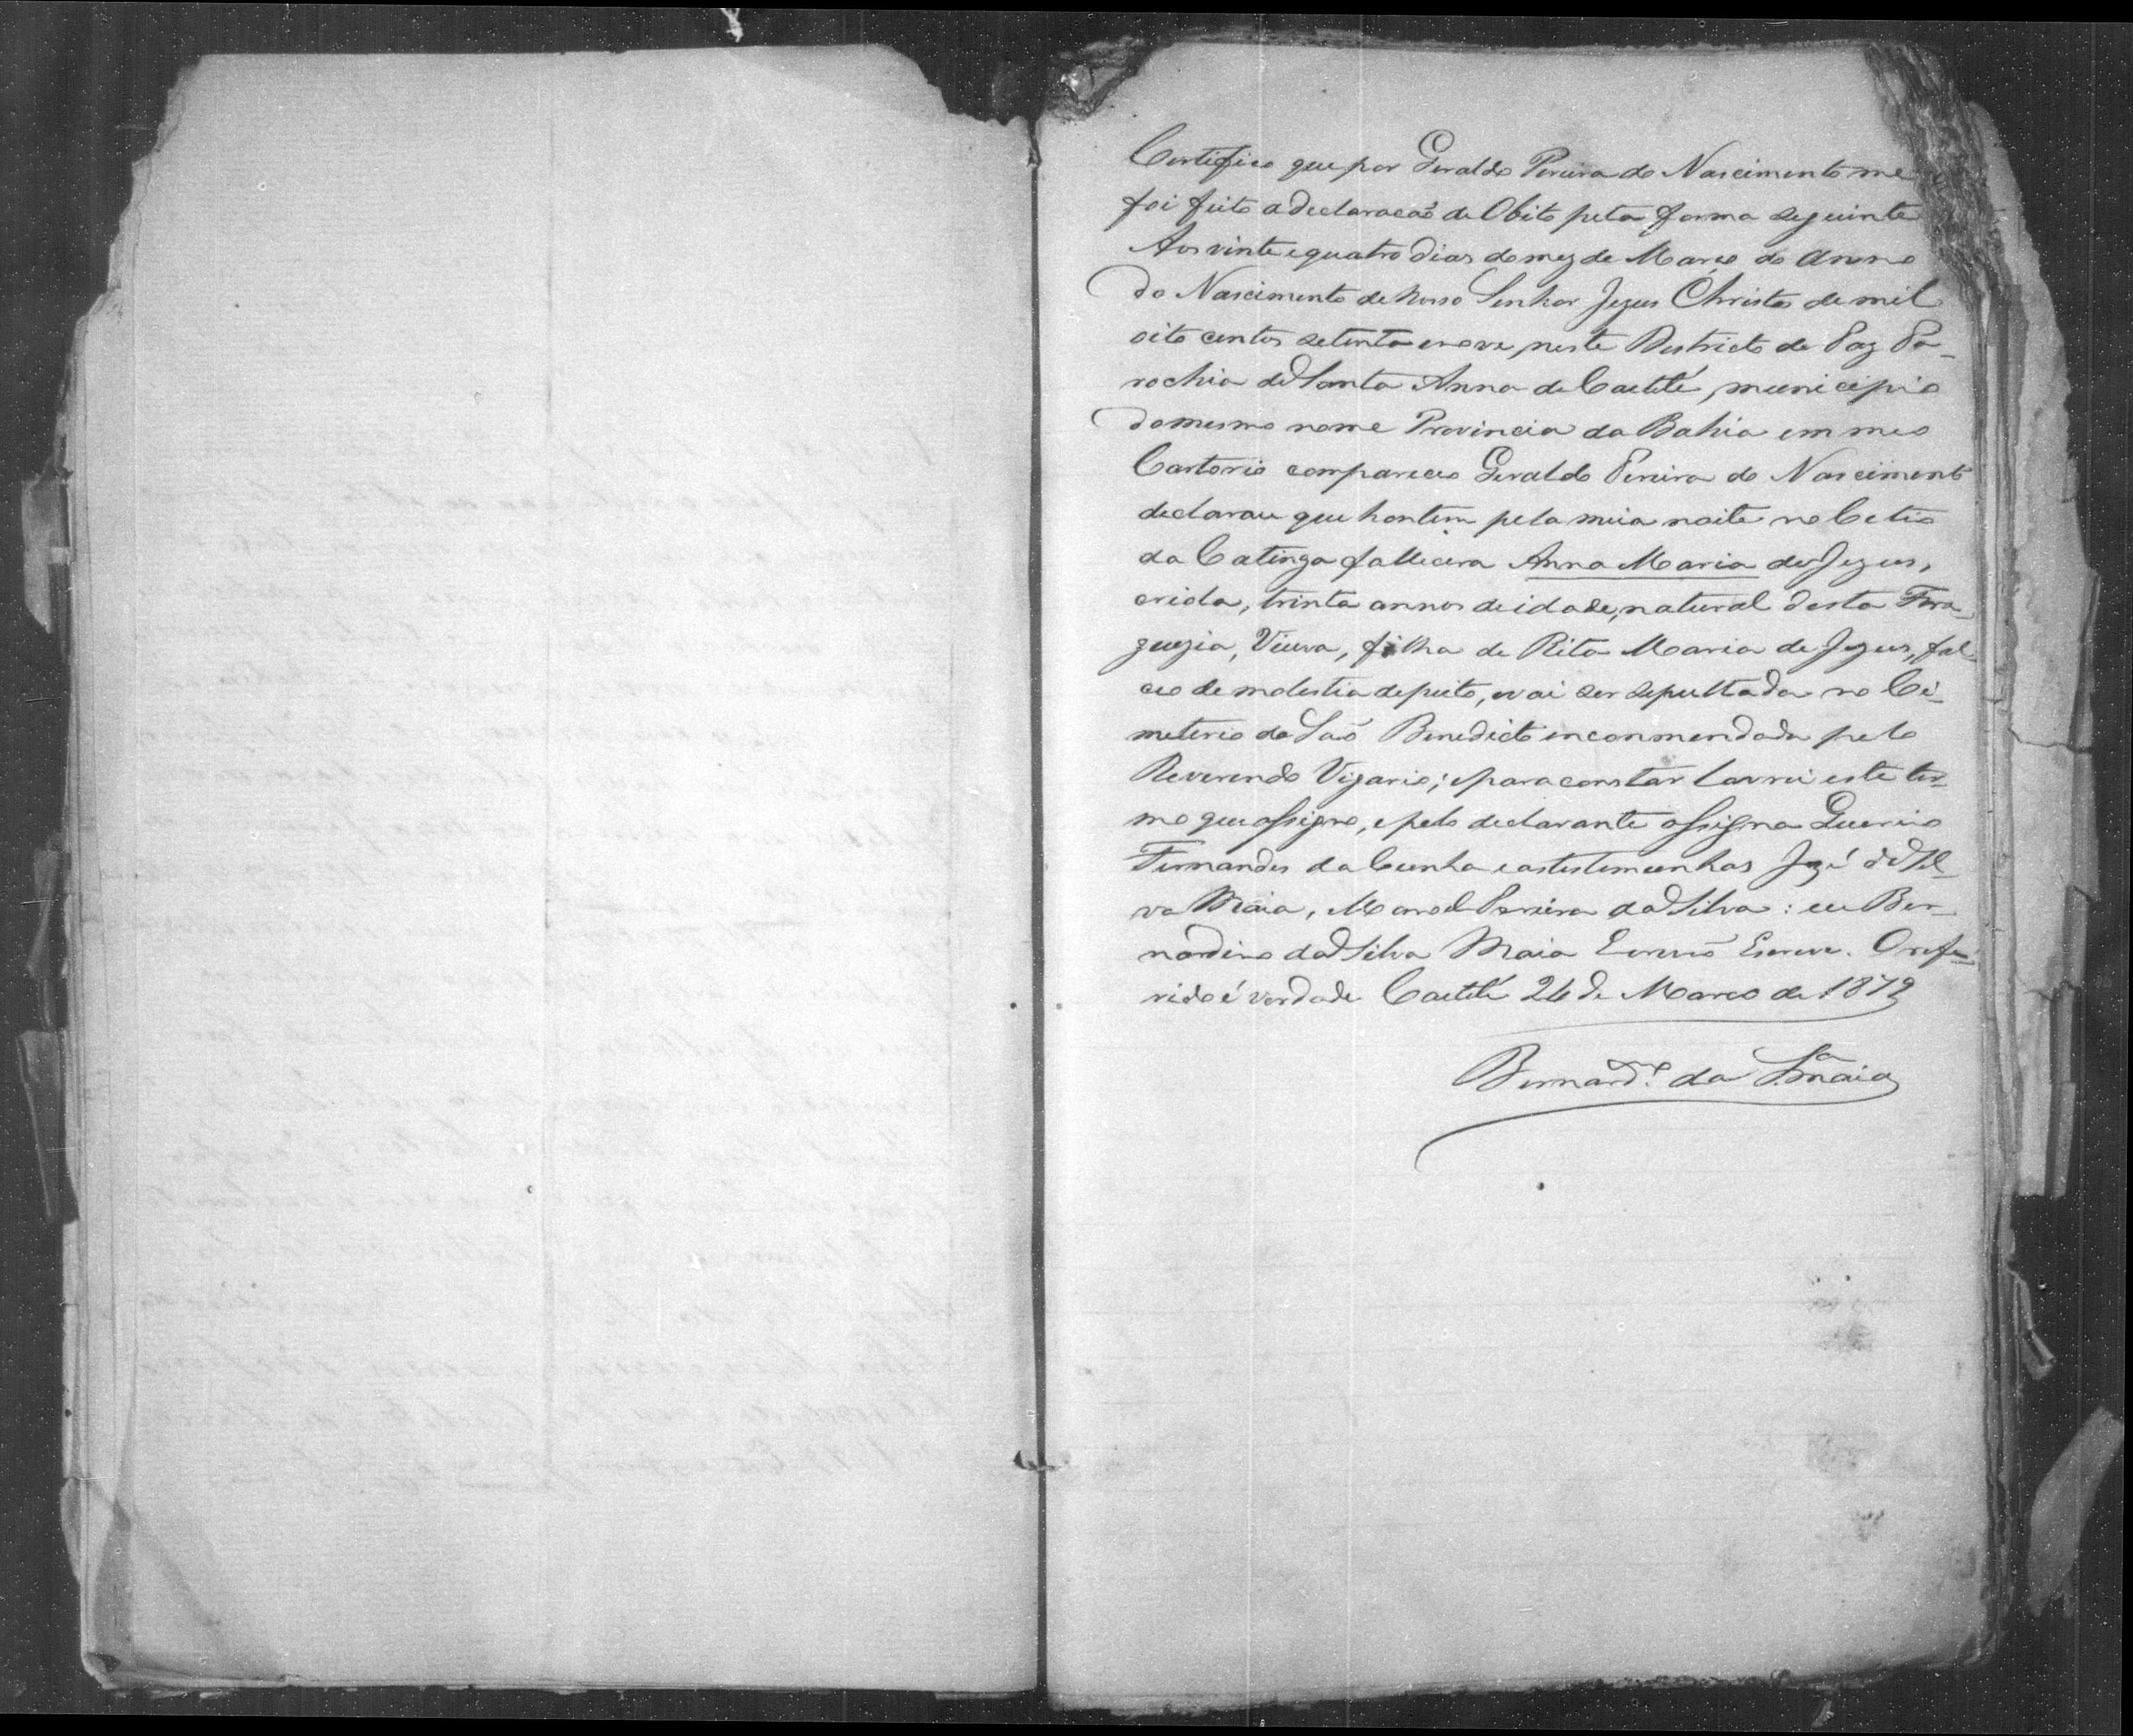 Certifico que por Geraldo Pereira do Nascimento me
foi feito a declaração de Obito pela forma seguinte
Aos vinte e quatro dias do mez de Março do Anno
do Nascimento de Nosso Senhor Jezus Christo de mil
oito centos setenta e nove, neste Destricto de Paz Pa-
rochia de Santa Anna de Caetité, municipio
do mesmo nome Provincia da Bahia em meo
Cartorio compareceo Geraldo Pereira do Nascimento
declarou que hontem pela meia noite no Cetio
da Catinga fallecera Anna Maria de Jezus,
criola, trinta annos de idade, natural desta Fre
guezia, Viuva, filha de Rita Maria de Jezus, fal
ceo de molestia de peito, e vai ser sepultada no Ce-
meterio de São Benedicto encommendada pelo
Reverendo Vigario; e para constar lavrei este ter-
mo que assigno, e pelo declarante assigna
Fernandes da Cunha e as testemunhas Jozé da Sil-
va Maia, Manoel Pereira da Silva: eu Ber-
nardino da Silva Maia Escrivão Escrevi. O refe-
rido é verdade Caetité 24 de Março de 1879
Bernard.º da S.ª Maia